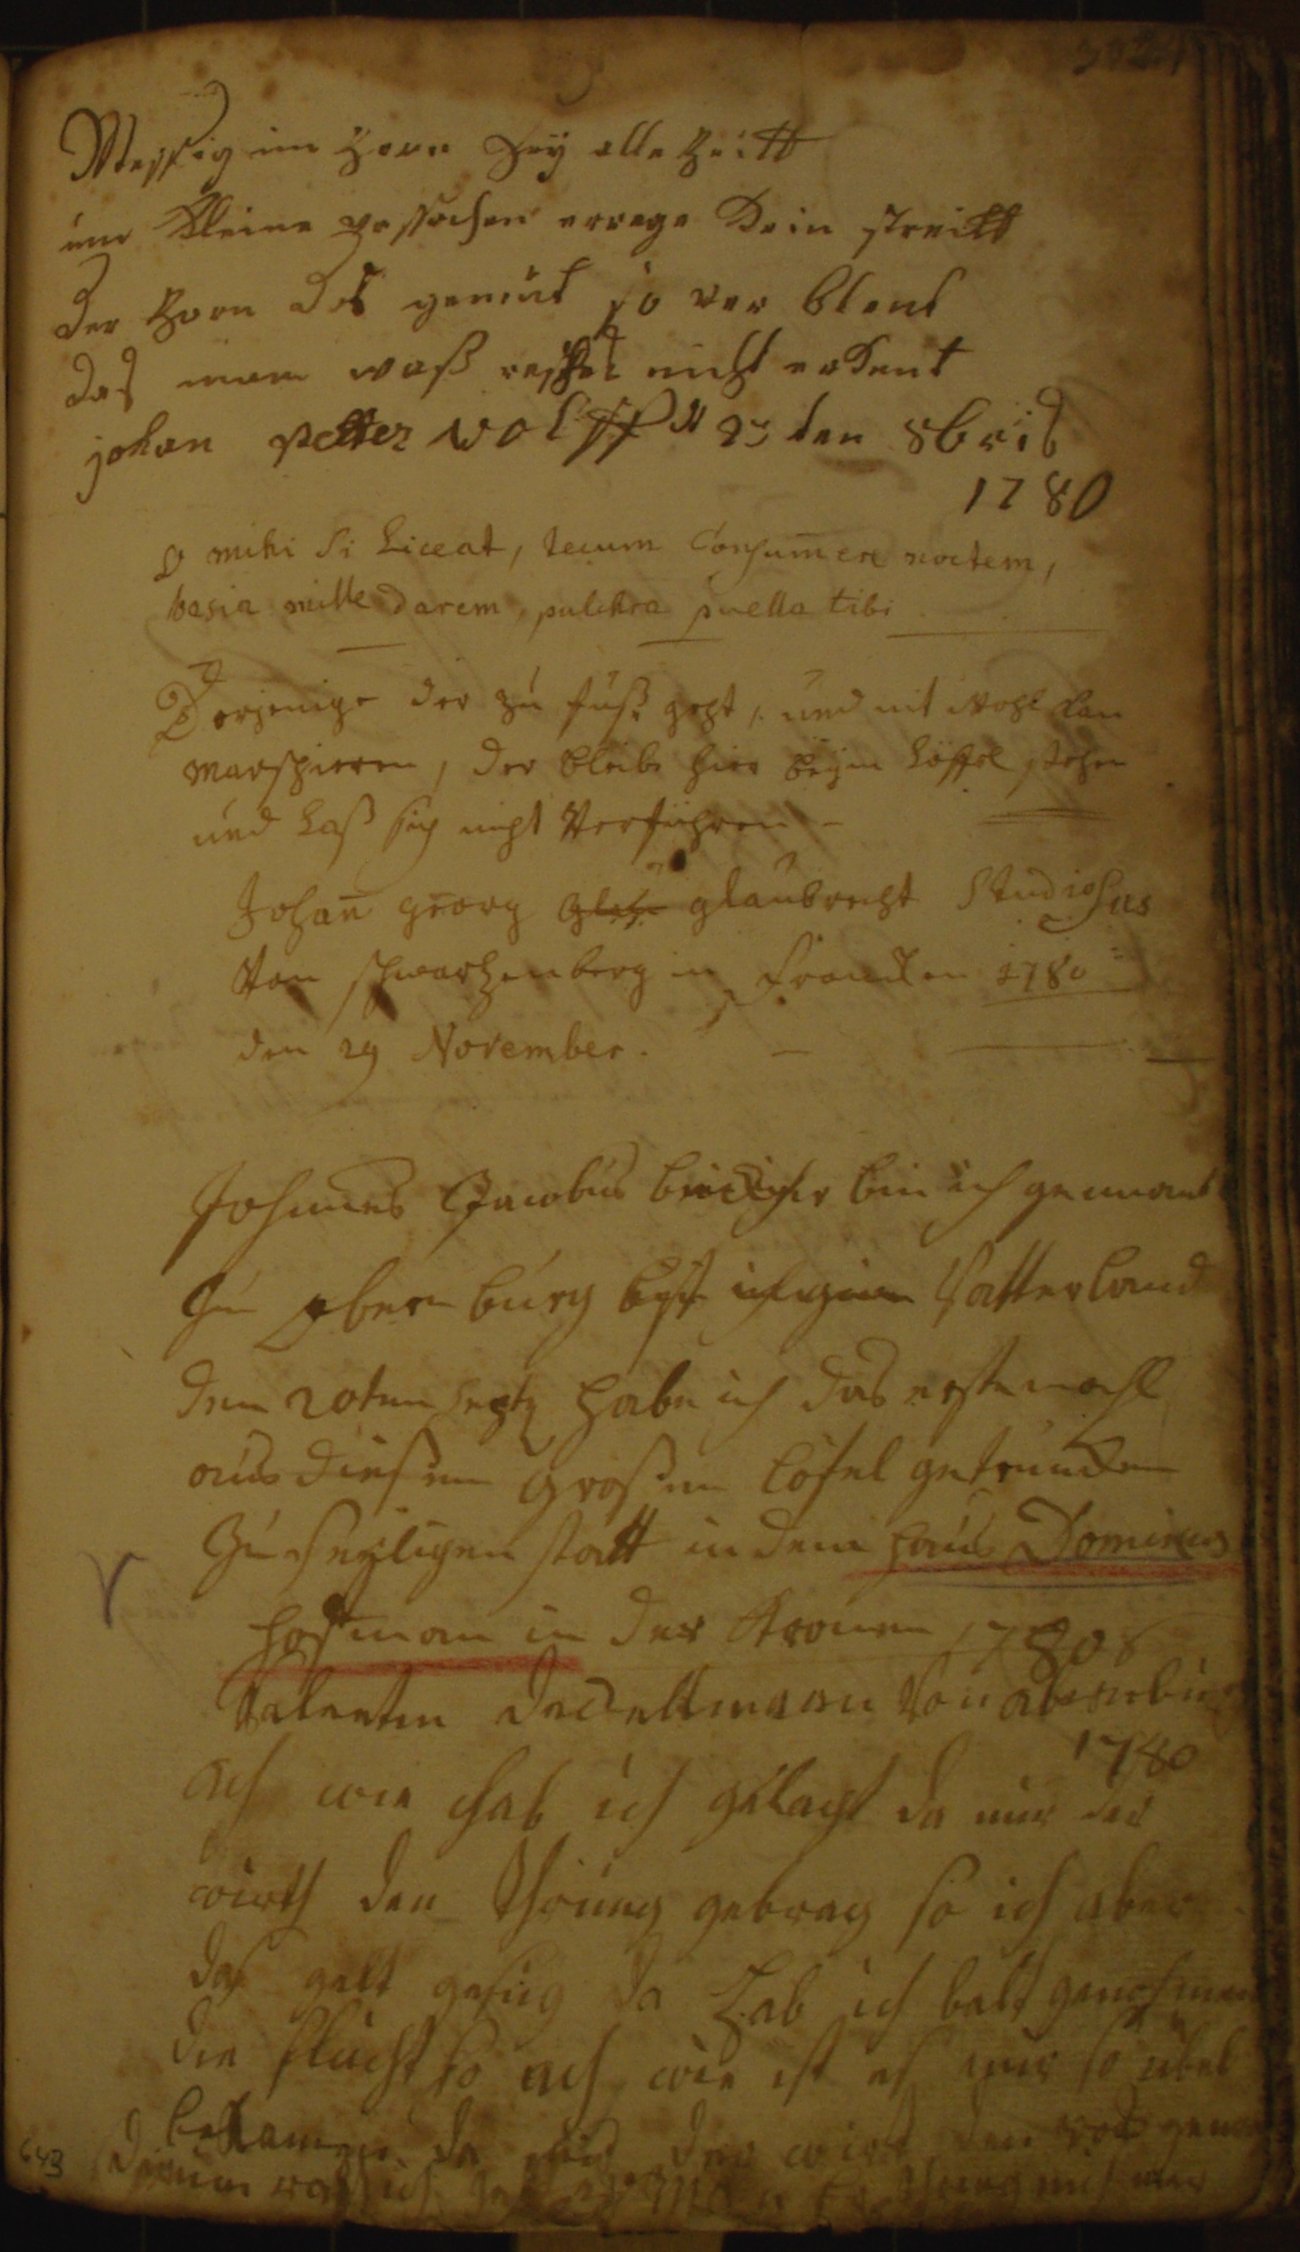 Messig im Zorn sey alle Zeitt
um kleine ursachen errege kein streitt
Der Zorn das gemüt so ver blent
das man waß rechtes nicht erkent
johan petter wolff den 8bris
1780
O mihi si Liceat, tecum Consum̅ere noctem,
basia mille darem, pulchra puella tibi
Derjenige der zu fuß geht, und nit wohl kan
marschieren, der bleibe hier beym Löffel stehen
und Laß sich nicht Verführen –
Johan̅ georg glaubrecht Studiosus
Von schwartzenberg in Francken 1780
den 29 November.
Johannes Jacobus bin ich genannt
Zu obernburg ist Vatterland
den 20ten septz habe ich das erste mahl
aus diesem Großen Löfel getruncken
Zu Heyligen statt in dem Haus Dominus
Hofman in der Kronen 1780
Valentin deckelmann Von obernbürg
1780
ach wie hab ich gelacht da mir der
wirth den Thrung gebrag so ich aber
das gelt gesug da hab ich balt genohmen
die flucht so ach wie ist es mir so übel
bekamen da der wirt den
643